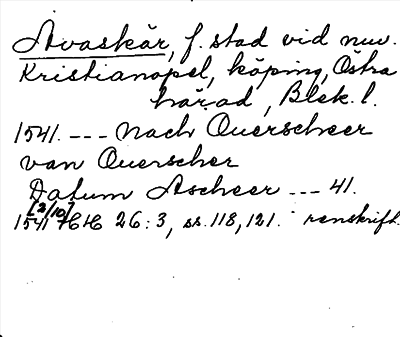 Avaskär, f. stad vid nuv.
Kristianopel, köping, Östra
härad, Blek. l.
1541. --- Nach Ouerscheer
van Ouerscher
Datum Ascheer --- 41.
[3/10]
1541 HH 26:3, ss. 118, 121. renskrift.